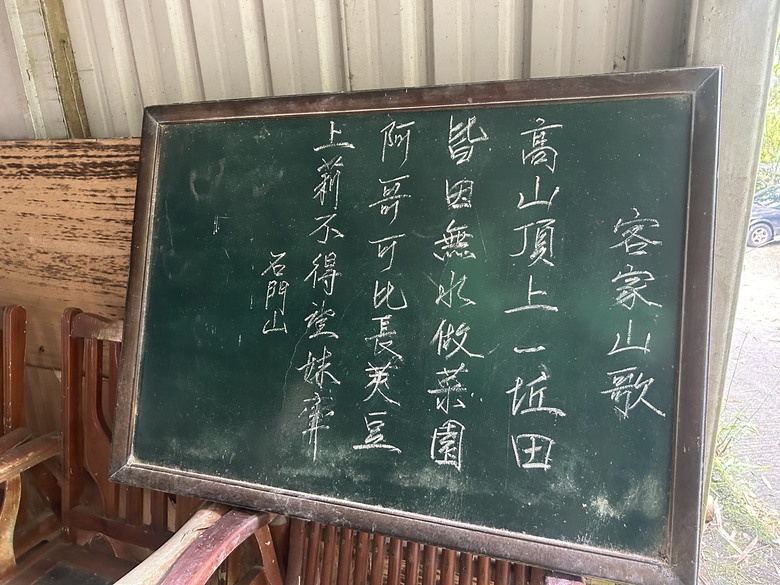 客家山歌
高山頂上一坵田
皆因無水做菜園
阿哥可比長莢豆
上莿不得望妹牽
石門山